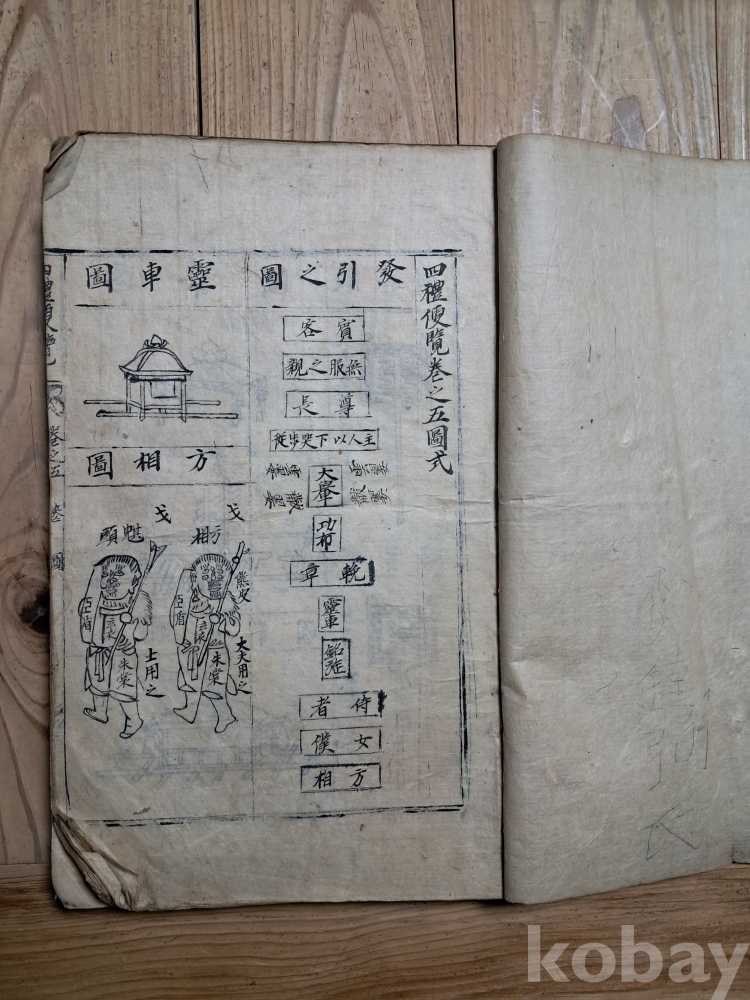 四禮便覽卷之五圖式
圖之引發
客賓
親之服無
長尊
徒步哭下以人主
大轝
功布
章輓
靈車
銘旌
者侍
僕女
相方
圖車靈
圖相方
戈
相方
熊皮
亞盾
玄衣
朱裳
大夫用之
戈
頭魌
亞盾
玄衣
朱裳
士用之
四禮便覽
卷之五
kobay